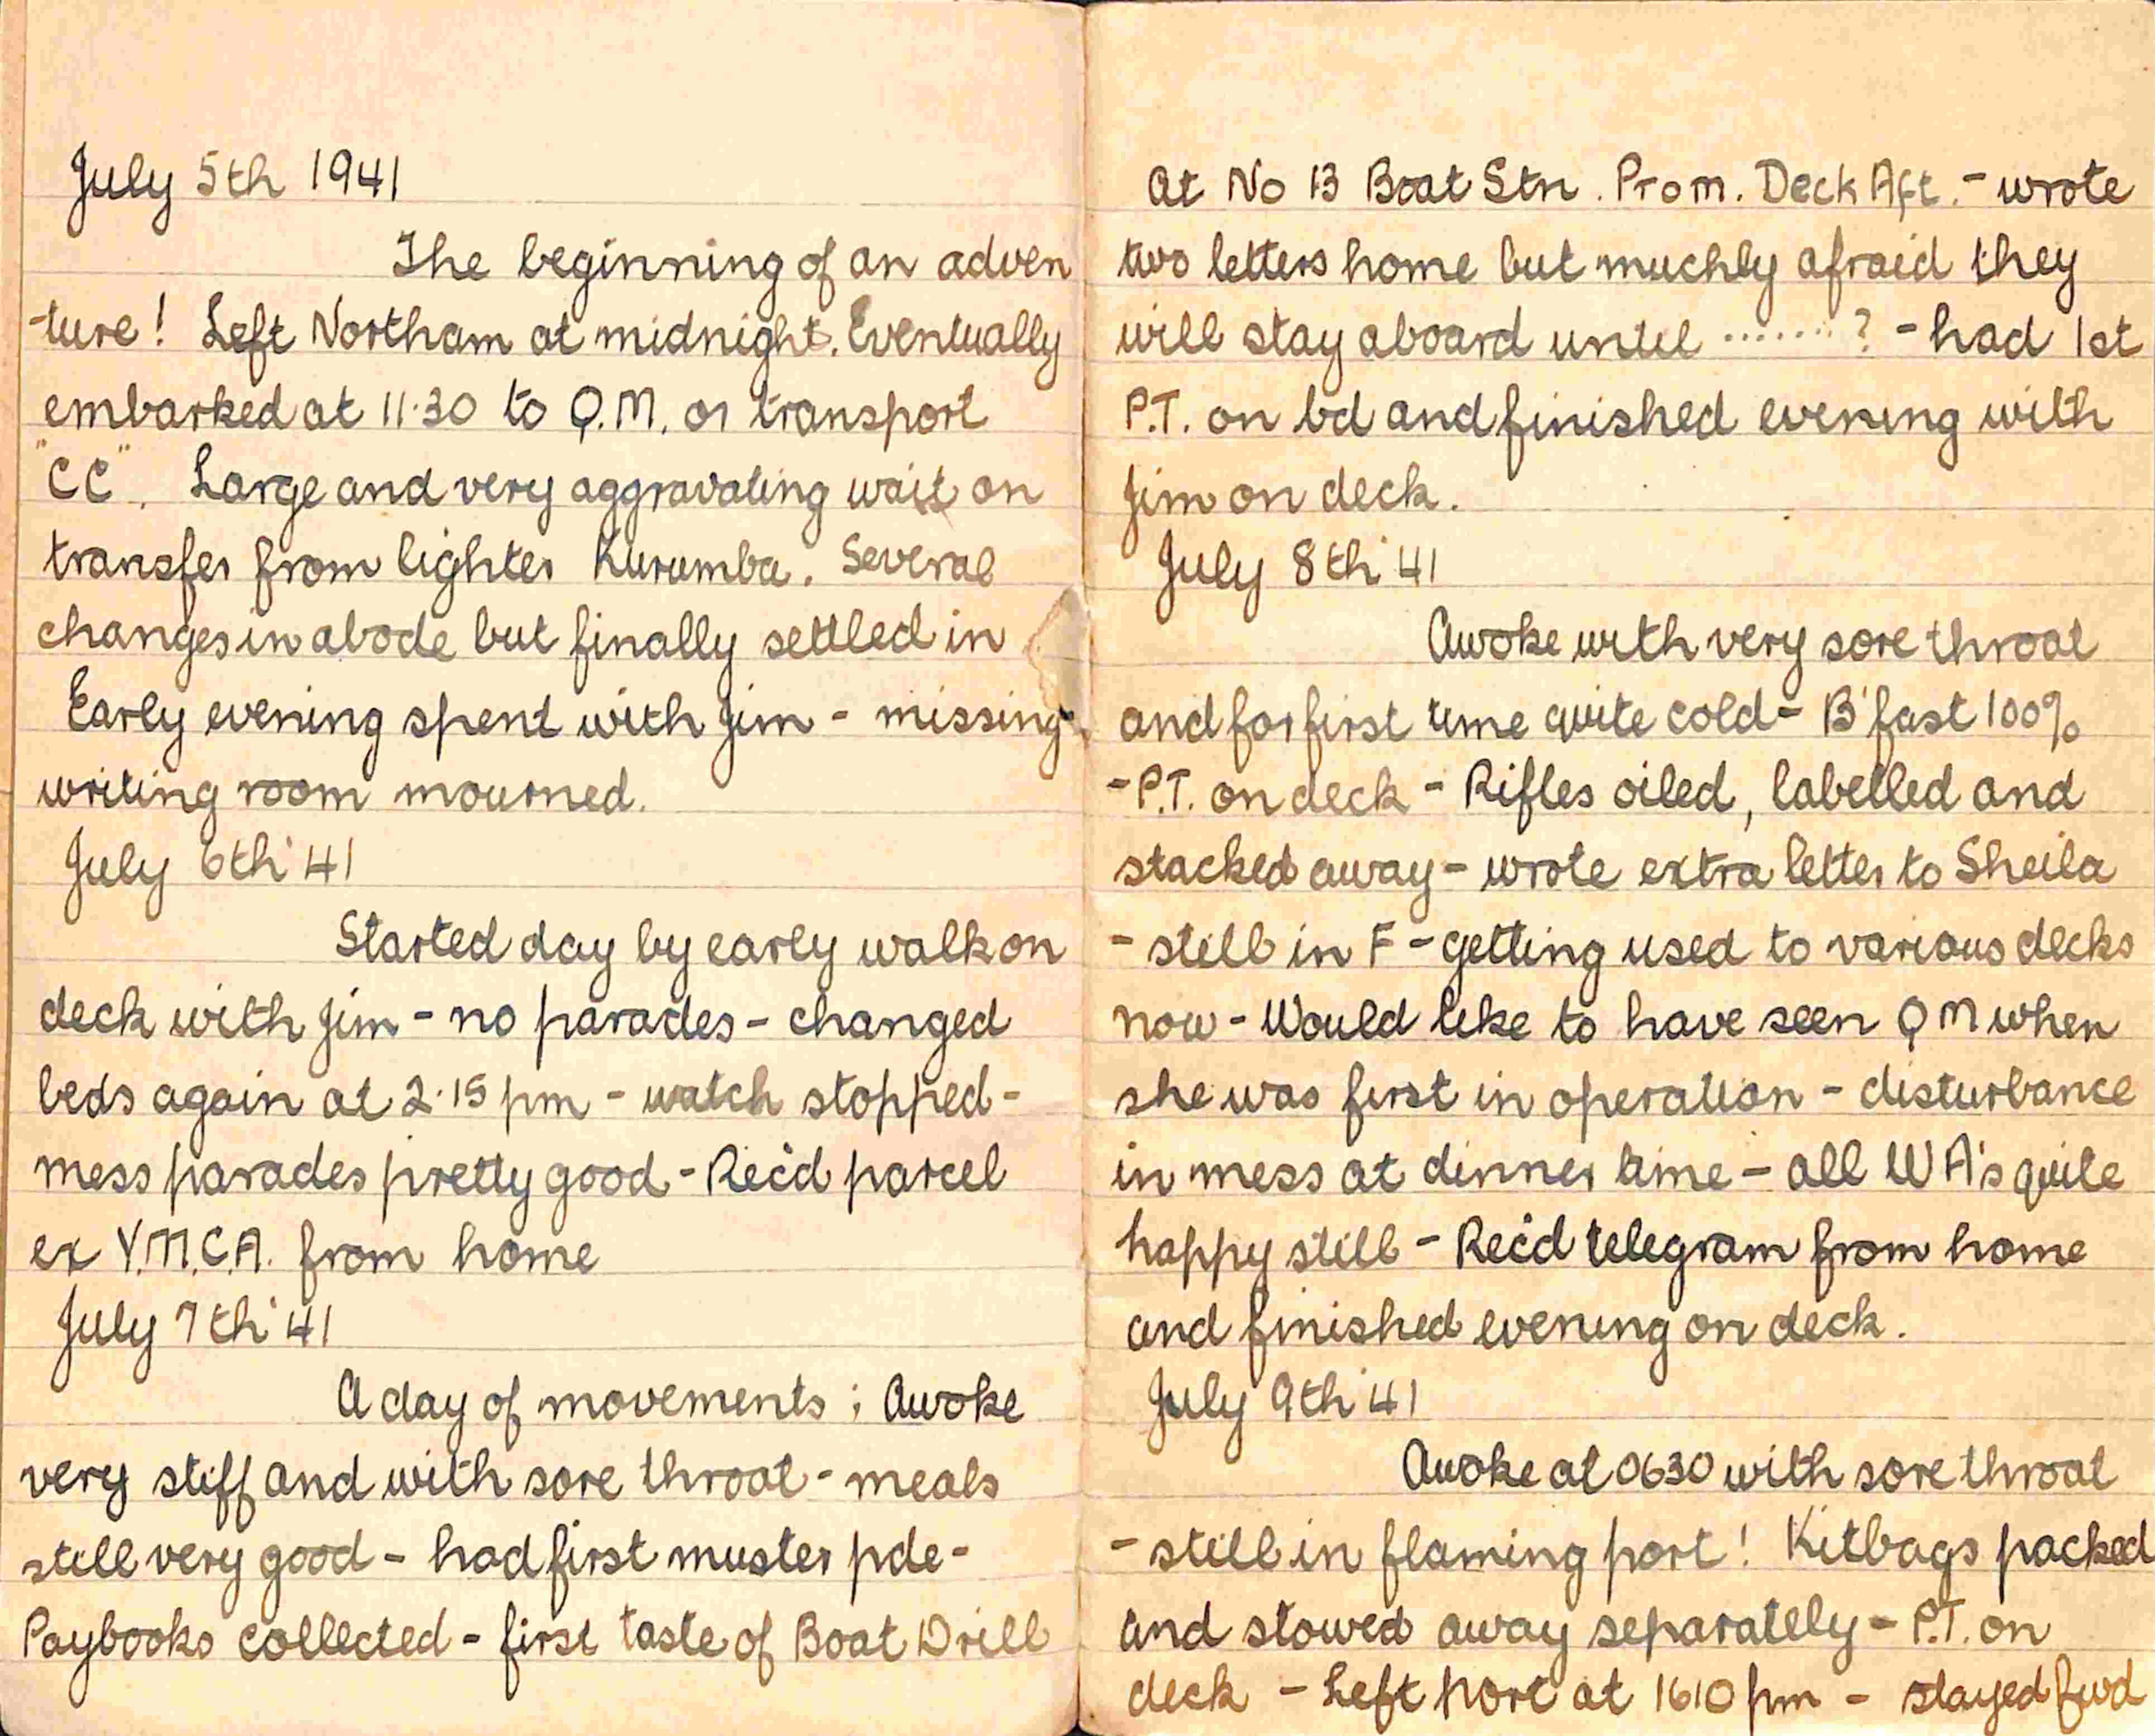 July 5th 1941
The beginning of an adven
-ture! Left Northam at midnight. Eventually
embarked at 11·30 to Q.M. or transport
"CC". Large and very aggravating wait on
transfer from lighter Kurumba. Several
changes in abode but finally settled in
Early evening spent with Jim - missing
writing room mourned.
July 6th '41
Started day by early walk on
deck with Jim - no parades - changed
beds again at 2·15 pm - watch stopped -
mess parades pretty good - Rec'd parcel
ex Y.M.C.A. from home
July 7th '41
A day of movements ; Awoke
very stiff and with sore throat - meals
still very good - had first muster pde -
Paybooks collected - first taste of Boat Drill
at No 13 Boat Stn. Prom. Deck Aft. - wrote
two letters home but muchly afraid they
will stay aboard until .......? - had 1st
P.T. on bd and finished evening with
Jim on deck.
July 8th '41
Awoke with very sore throat
and for first time quite cold - B'fast 100%
- P.T. on deck - Rifles oiled, labelled and
stacked away - wrote extra letter to Sheila
- still in F - getting used to various decks
now - Would like to have seen QM when
she was first in operation - disturbance
in mess at dinner time - all WA's quite
happy still - Rec'd telegram from home
and finished evening on deck.
July 9th '41
Awoke at 0630 with sore throat
- still in flaming port! Kitbags packed
and stowed away separately - P.T. on
deck - Left port at 1610 pm - stayed fwd